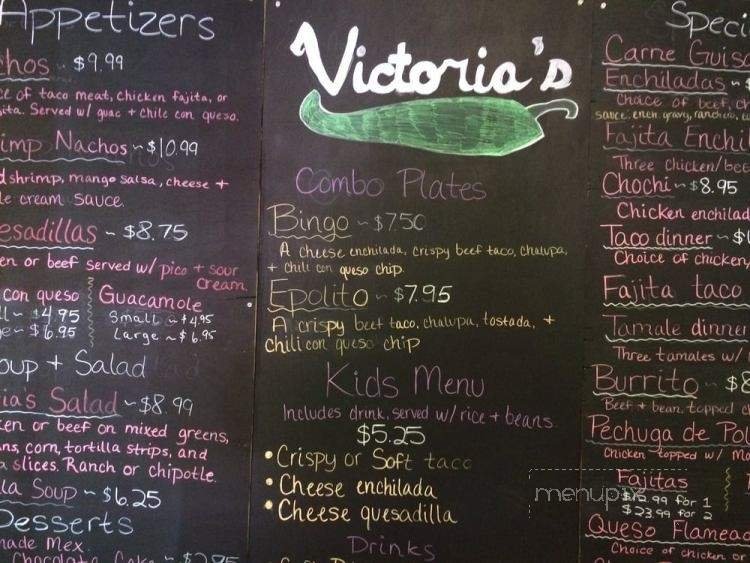 Appetizers
hos ~ $9.99
ce of taco meat, chicken fajita, or
jita. Served w/ guac + chile con queso.
imp Nachos ~ $10.99
d shrimp, mango salsa, cheese +
le cream sauce.
esadillas ~ $8.75
en or beef served w/ pico + sour
cream.
con queso
ll ~ $4.95
ge ~ $6.95
Guacamole
Small ~ $4.95
Large ~ $6.95
oup + Salad
ria's Salad ~ $8.99
ken or beef on mixed greens,
ns, corn, tortilla strips, and
a slices. Ranch or chipotle.
la Soup ~ $6.25
Desserts
made Mex.
Chocolate Cake ~ $2.95
Victoria's
Combo Plates
Bingo ~ $7.50
A cheese enchilada, crispy beef taco, chalupa,
+ chili con queso chip.
Epolito ~ $7.95
A crispy beef taco, chalupa, tostada, +
chili con queso chip
Kids Menu
Includes drink, served w/ rice + beans.
$5.25
• Crispy or Soft taco
• Cheese enchilada
• Cheese quesadilla
Drinks
Speci
Carne Guis
Enchiladas ~
Choice of beef, c
sauce: ench. gravy, ranchero,
Fajita Enchi
Three chicken/bee
Chochi ~ $8.95
Chicken enchilad
Taco dinner ~ $
Choice of chicken,
Fajita taco
Tamale dinner
Three tamales w/
Burrito ~ $8
Beef + bean, topped
Pechuga de Pol
Chicken topped w/ Mo
Fajitas
$12.99 for 1
$23.99 for 2
Queso Flamea
Choice of chicken or
menupix